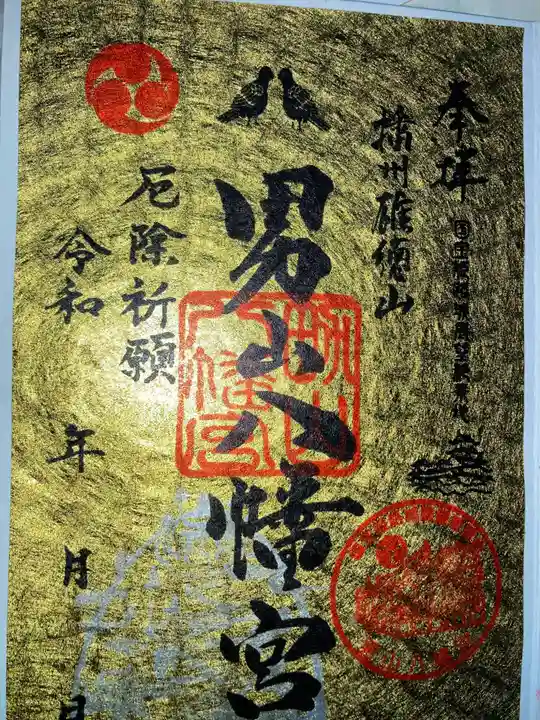 奉拝
播州
山
男山八幡宮
厄除祈願
令和
年
月
日